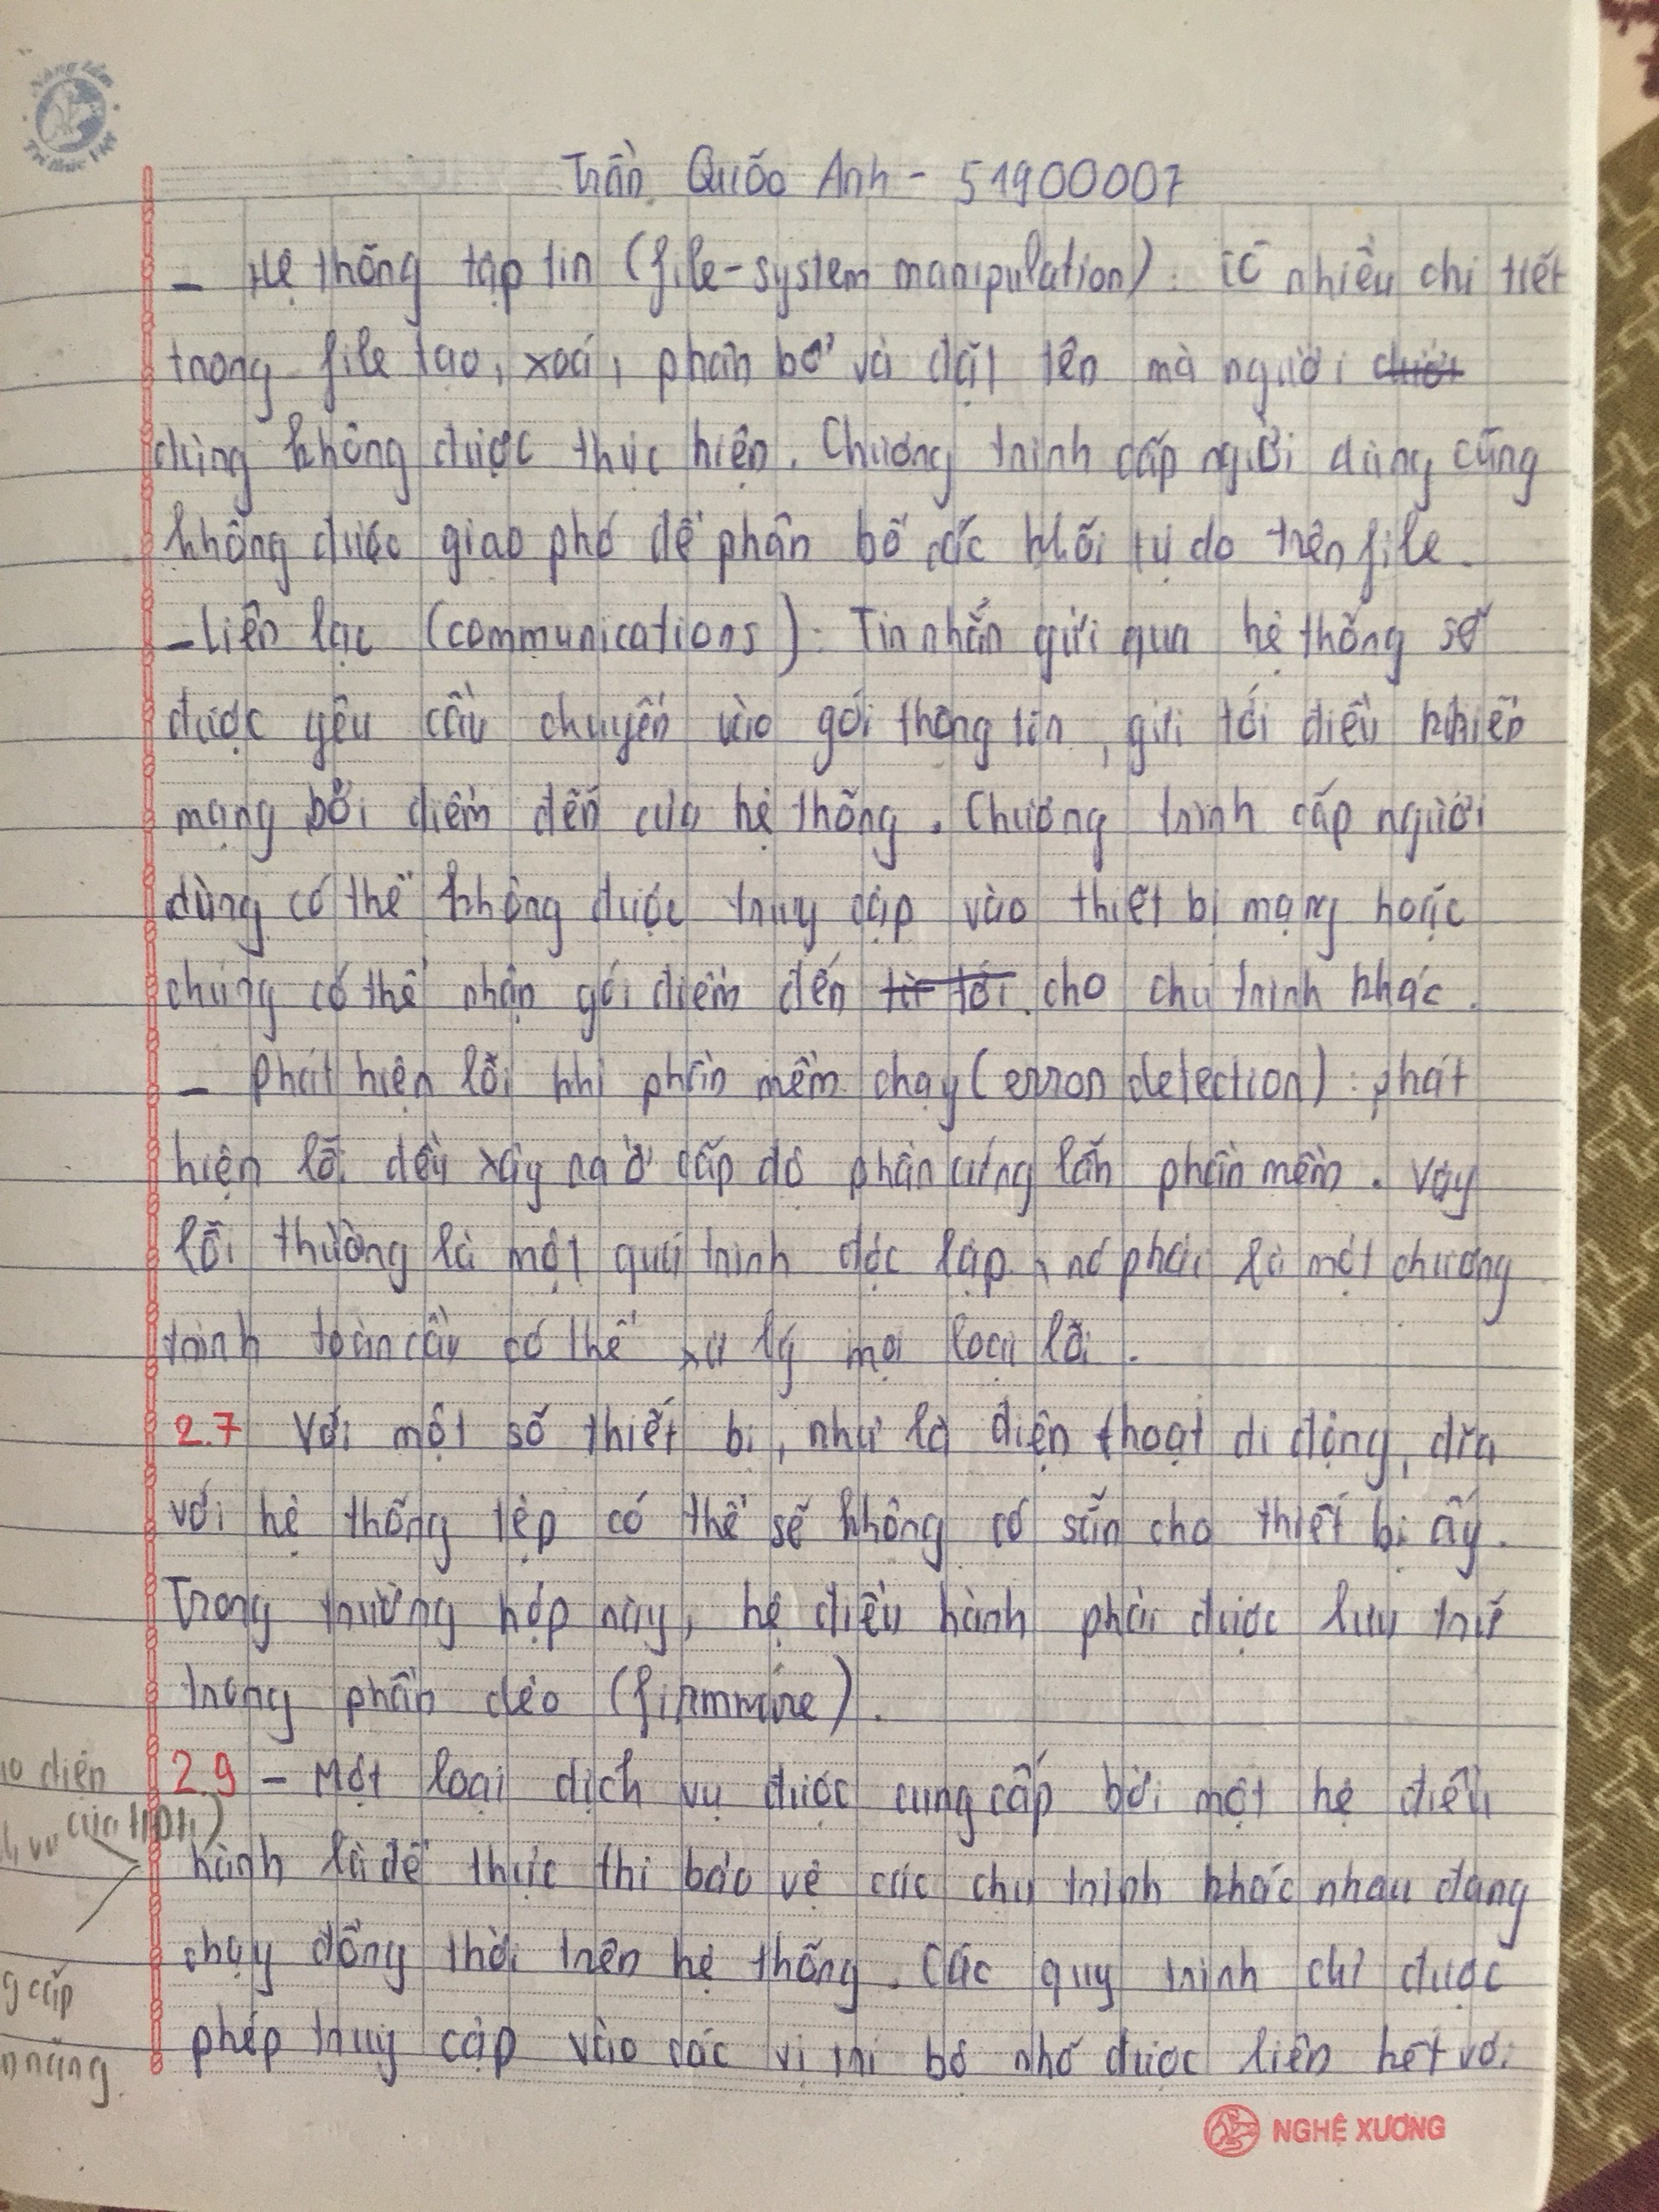 Nâng tầm
Tri thức Việt
Trần Quốc Anh - 51900007
- Hệ thống tập tin (file-system manipulation): có nhiều chi tiết
trong file tạo, xoá, phân bổ và đặt tên mà người
dùng không được thực hiện. Chương trình cấp người dùng cũng
không được giao phó để phân bổ các khối tự do trên file.
- Liên lạc (communications): Tin nhắn gửi qua hệ thống sẽ
được yêu cầu chuyển vào gói thông tin, gửi tới điều khiển
mạng bởi điểm đến của hệ thống. Chương trình cấp người
dùng có thể không được truy cập vào thiết bị mạng hoặc
chúng có thể nhận gói điểm đến từ tới cho chu trình khác.
- Phát hiện lỗi khi phần mềm chạy (error detection): phát
hiện lỗi đều xảy ra ở cấp độ phần cứng lẫn phần mềm. Vậy
lỗi thường là một quá trình độc lập, nó phải là một chương
trình toàn cầu có thể xử lý mọi loại lỗi.
2.7 Với một số thiết bị, như là điện thoại di động, đĩa
với hệ thống tệp có thể sẽ không có sẵn cho thiết bị ấy.
Trong trường hợp này, hệ điều hành phải được lưu trữ
trong phần dẻo (firmware).
2.9 - Một loại dịch vụ được cung cấp bởi một hệ điều
hành là để thực thi bảo vệ các chu trình khác nhau đang
chạy đồng thời trên hệ thống. Các quy trình chỉ được
phép truy cập vào các vị trí bộ nhớ được liên kết với
diện
của
cấp
năng.
NGHỆ XƯƠNG